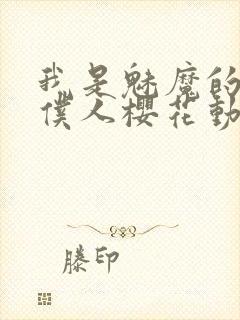 我是魅魔的
僕人櫻花動
滕印